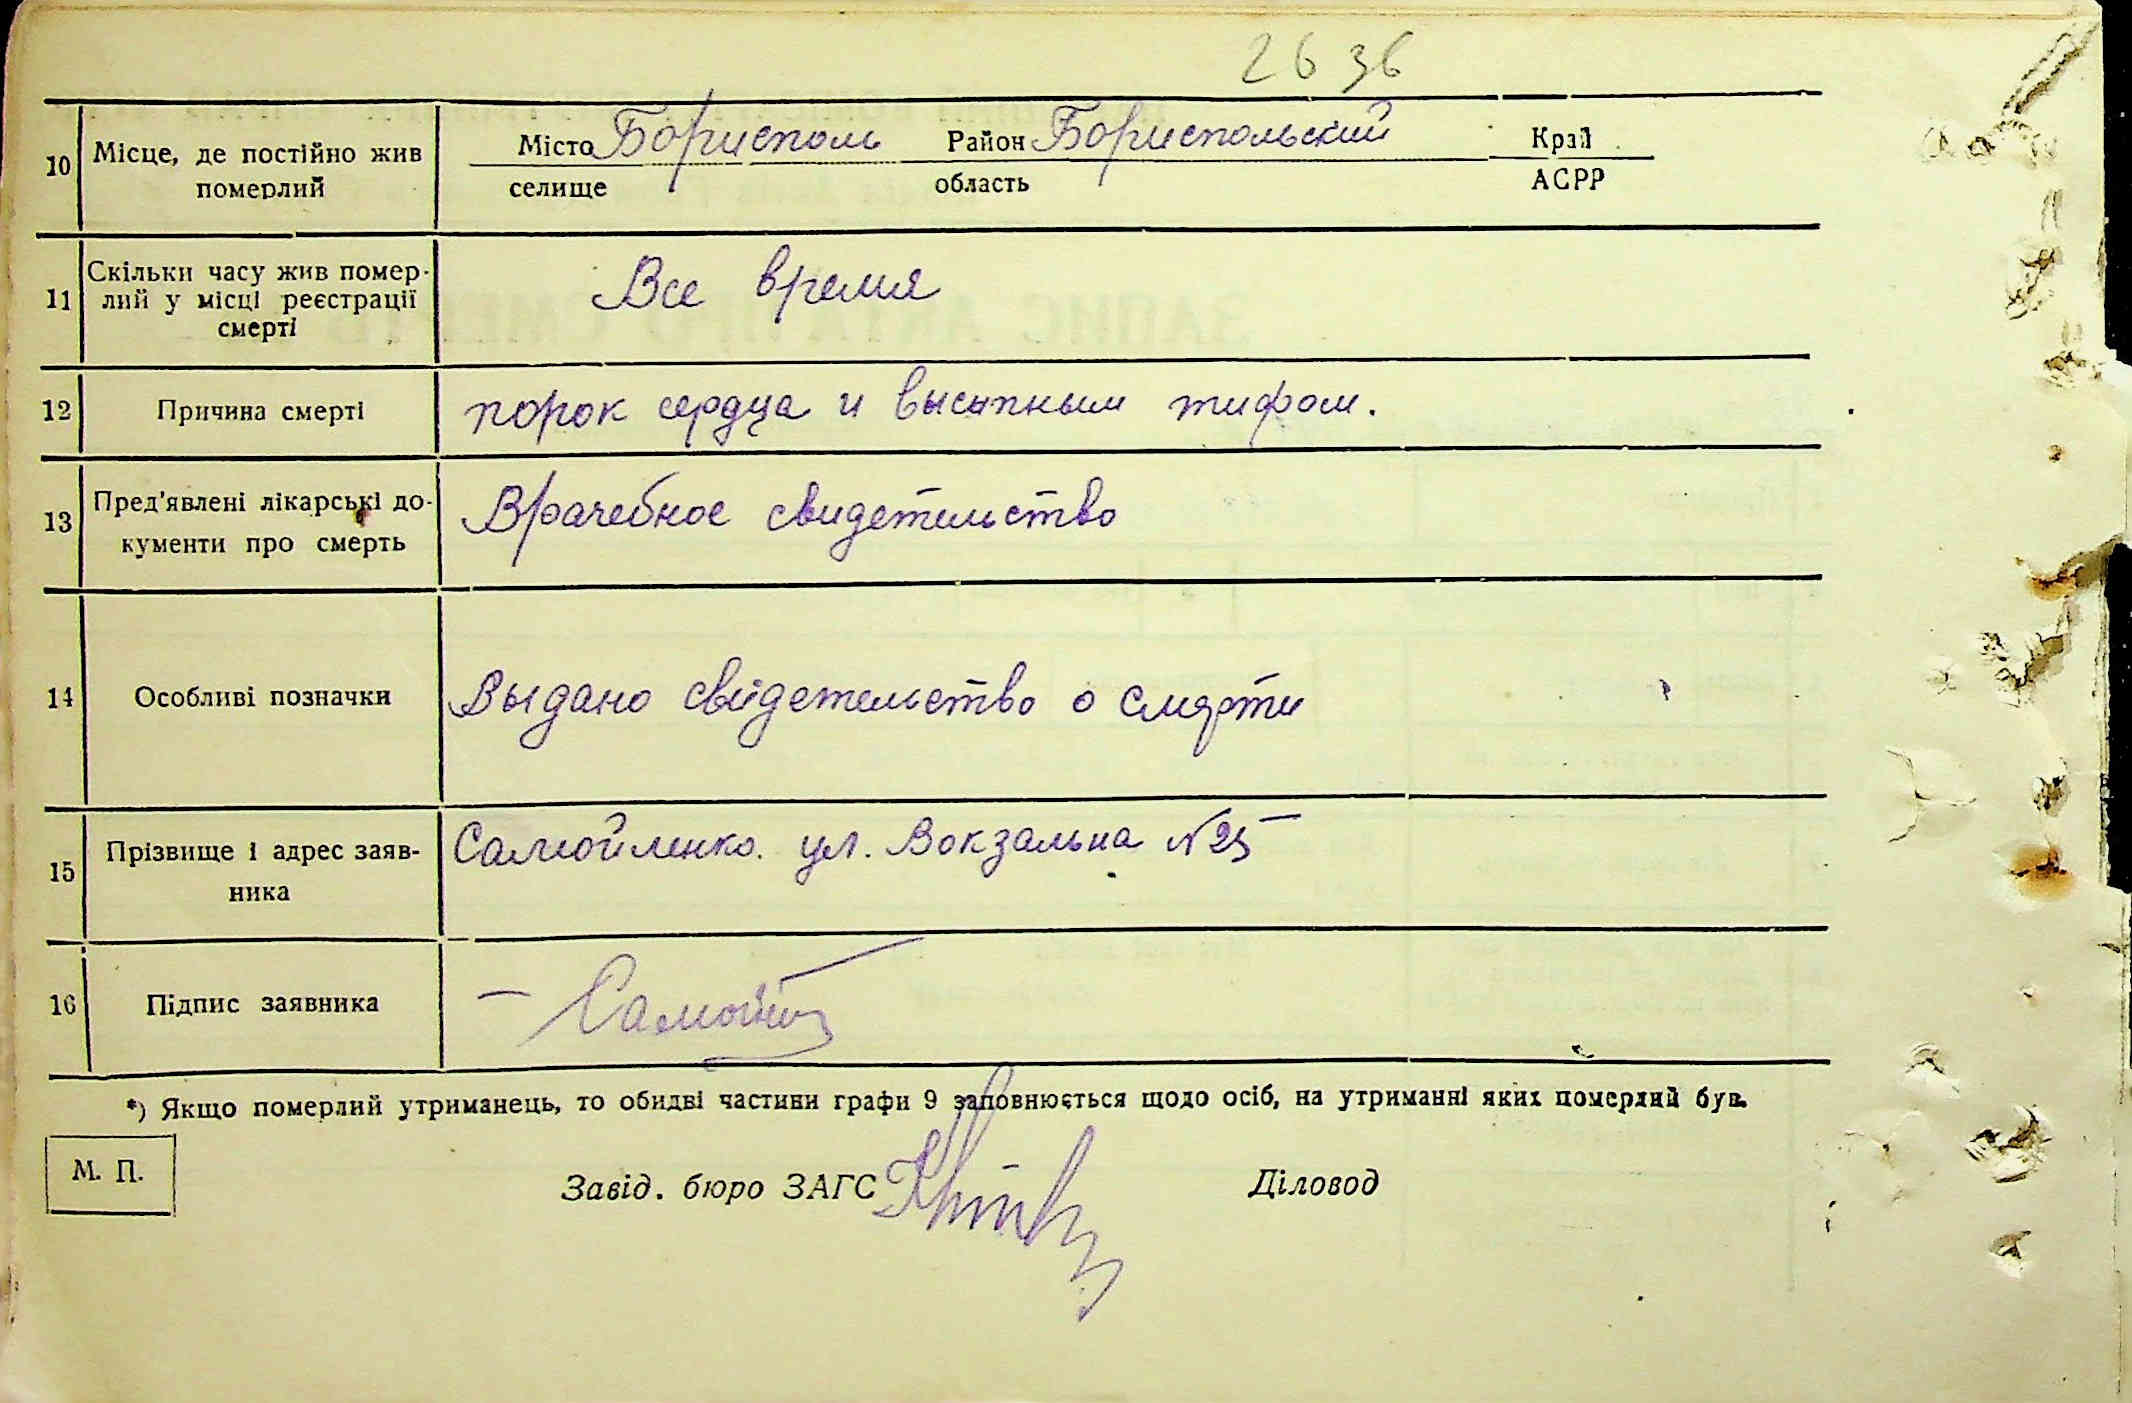 26 зб
10 Місце, де постійно жив померлий Місто Борисполь Район Бориспольский Край
селище область АСРР
11 Скільки часу жив помер-
лий у місці реєстрації
смерті
Все время
12 Причина смерті порок сердца и высыпным тифом.
13 Пред'явлені лікарські до-
кументи про смерть
Врачебное свидетельство
14 Особливі позначки Выдано свидетельство о смерти
15 Прізвище і адрес заяв-
ника
Самойленко. ул. Вокзальна №25
16 Підпис заявника
*) Якщо померлий утриманець, то обидві частини графи 9 заповнюється щодо осіб, на утриманні яких померлий був.
М. П.
Завід. бюро ЗАГС Діловод